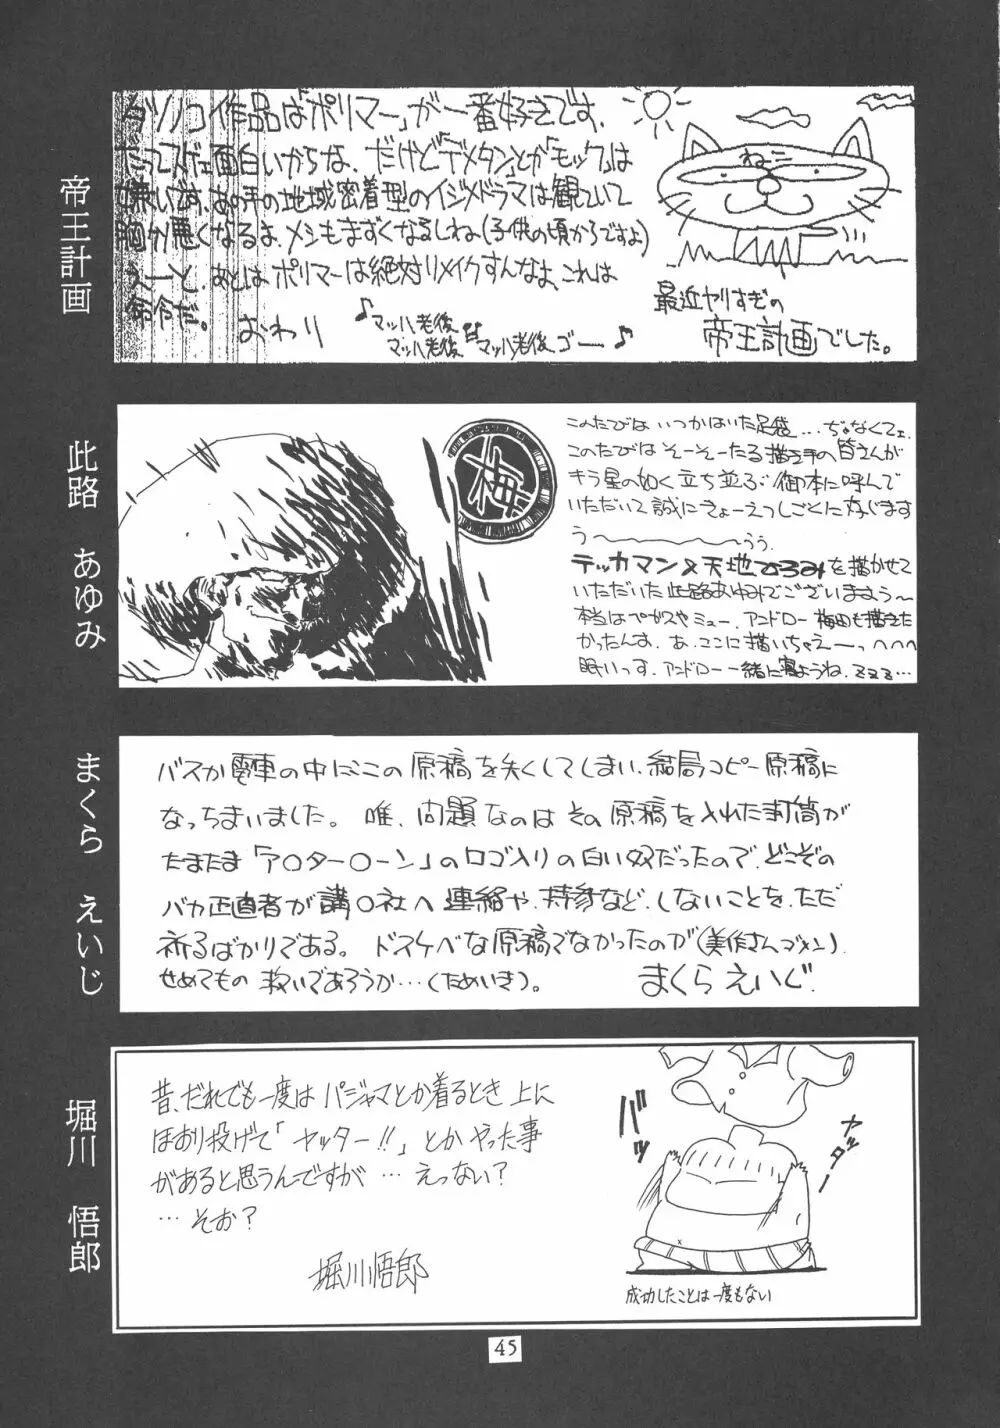 帝王計画
タツノコ作品は「ポリマー」が一番好きです、
だってスゲェ面白いからな、だけど「デメタン」とか「モック」は
嫌いです、あの手の地域密着型のイジメドラマは観ていて
胸が悪くなるよ、メシもまずくなるしね(子供の頃からですよ)
えーと、あとはポリマーは絶対リメイクすんなよ、これは
命令だ。
おわり
♪マッハ老後
マッハ老後
マッハ老後ゴー♪
ねこ
最近ヤリすぎの
帝王計画でした。
此路 あゆみ
梅
このたびは いつかはいた足袋…ぢゃなくてェ、
このたびは そーそーたる描き手の皆さんが
キラ星の如く立ち並ぶ 御本に呼んで
いただいて誠にきょーえつしごくに存じます
う〜〜〜〜〜〜うぅ
テッカマン×天地ひろみを描かせて
いただいた 此路あゆみでございますぅ〜
本当はペガスやミュー、アンドロー梅田も描きた
かったんす。あ、ここに描いちゃえーっ へへへ
眠いっす。アンドロー 一緒に寝ようね、ZZZ…
まくら えいじ
バスか電車の中にこの原稿を失くしてしまい、結局コピー原稿に
なっちまいました。唯、問題なのは その原稿を入れた封筒が
たまたま「ア○ター○ーン」のロゴ入りの白い奴だったので、どこぞの
バカ正直者が講○社へ連絡や、持参など、しないことを、ただ
祈るばかりである。ドスケベな原稿でなかったのが(美作さんゴメン)
せめてもの 救いであろうか…(ためいき)。
まくらえいじ.
堀川 悟郎
昔、だれでも一度は パジャマとか着るとき 上に
ほおり投げて「ヤッター!!」とか やった事
があると思うんですが … えっない?
… そお?
堀川悟郎
バッ
ヤッター
x
成功したことは一度もない
45